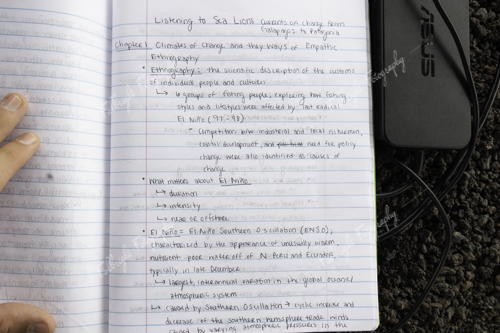 Listening to Sea Lions currents of change from
Galapagos to Patagonia
Chapter 1: Climates of Change and the Ways of Empathic
Ethnography
• Ethnography: the scientific description of the customs
of individual people and cultures
↳ 4 groups of fishing people; exploring how fishing
styles and lifestyles were affected by last radical
El Niño (97-98)
Competition b/w industrial and local fishermen,
coastal development, need for policy
change were also identified as issues of
change
• What matters about El Niño
↳ duration
↳ intensity
↳ near or offshore
• El Niño = El Niño Southern Oscillation (ENSO),
characterized by the appearance of unusually warm,
nutrient-poor water off of N. Peru and Ecuador,
typically in late December
↳ largest interannual variation in the global oceanic/
atmospheric system
↳ caused by Southern Oscillation → cyclic increase and
decrease of the southern hemisphere trade winds
caused by varying atmospheric pressures in the
ASUS
Photography